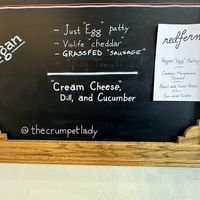 vegan
- Just "Egg" patty
- Violife "cheddar"
- GRASSFED "SAUSAGE"
"Cream Cheese,"
Dill, and Cucumber
@thecrumpetlady
redfern
Vegan "Egg" Patty
Cashew Macadamia
"Cheese"
Basil and Kale Pesto
Sun-dried Tomato